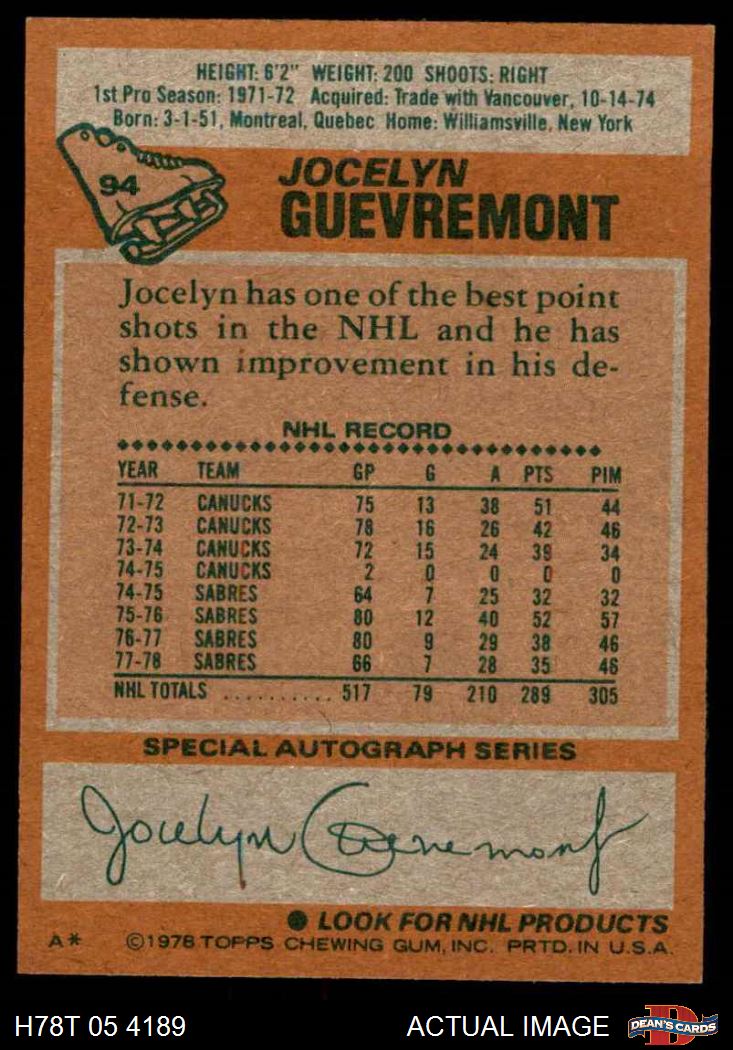 HEIGHT: 6'2" WEIGHT: 200 SHOOTS: RIGHT
1st Pro Season: 1971-72 Acquired: Trade with Vancouver, 10-14-74
Born: 3-1-51, Montreal, Quebec Home: Williamsville, New York
94
JOCELYN
GUEVREMONT
Jocelyn has one of the best point
shots in the NHL and he has
shown improvement in his de-
fense.
NHL RECORD
YEAR TEAM GP G A PTS PIM
71-72 CANUCKS 75 13 38 51 44
72-73 CANUCKS 78 16 26 42 46
73-74 CANUCKS 72 15 24 39 34
74-75 CANUCKS 2 0 0 0 0
74-75 SABRES 64 7 25 32 32
75-76 SABRES 80 12 40 52 57
76-77 SABRES 80 9 29 38 46
77-78 SABRES 66 7 28 35 46
NHL TOTALS .......... 517 79 210 289 305
SPECIAL AUTOGRAPH SERIES
Jocelyn Guevremont
● LOOK FOR NHL PRODUCTS
A* ©1978 TOPPS CHEWING GUM, INC. PRTD. IN U.S.A.
H78T 05 4189 ACTUAL IMAGE DEAN'S CARDS